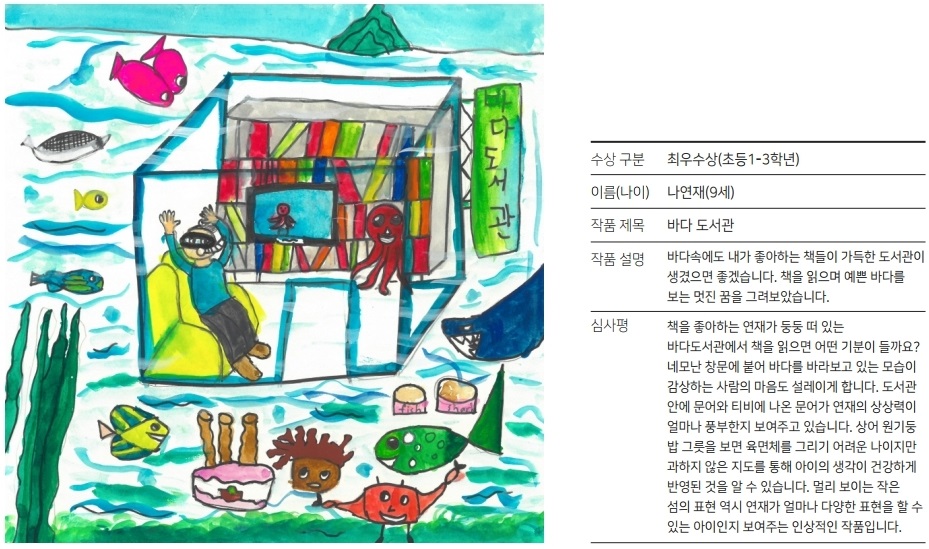 바다도서관
수상 구분 최우수상(초등1-3학년)
이름(나이) 나연재(9세)
작품 제목 바다 도서관
작품 설명 바다속에도 내가 좋아하는 책들이 가득한 도서관이
생겼으면 좋겠습니다. 책을 읽으며 예쁜 바다를
보는 멋진 꿈을 그려보았습니다.
심사평 책을 좋아하는 연재가 둥둥 떠 있는
바다도서관에서 책을 읽으면 어떤 기분이 들까요?
네모난 창문에 붙어 바다를 바라보고 있는 모습이
감상하는 사람의 마음도 설레이게 합니다. 도서관
안에 문어와 티비에 나온 문어가 연재의 상상력이
얼마나 풍부한지 보여주고 있습니다. 상어 원기둥
밥 그릇을 보면 육면체를 그리기 어려운 나이지만
과하지 않은 지도를 통해 아이의 생각이 건강하게
반영된 것을 알 수 있습니다. 멀리 보이는 작은
섬의 표현 역시 연재가 얼마나 다양한 표현을 할 수
있는 아이인지 보여주는 인상적인 작품입니다.